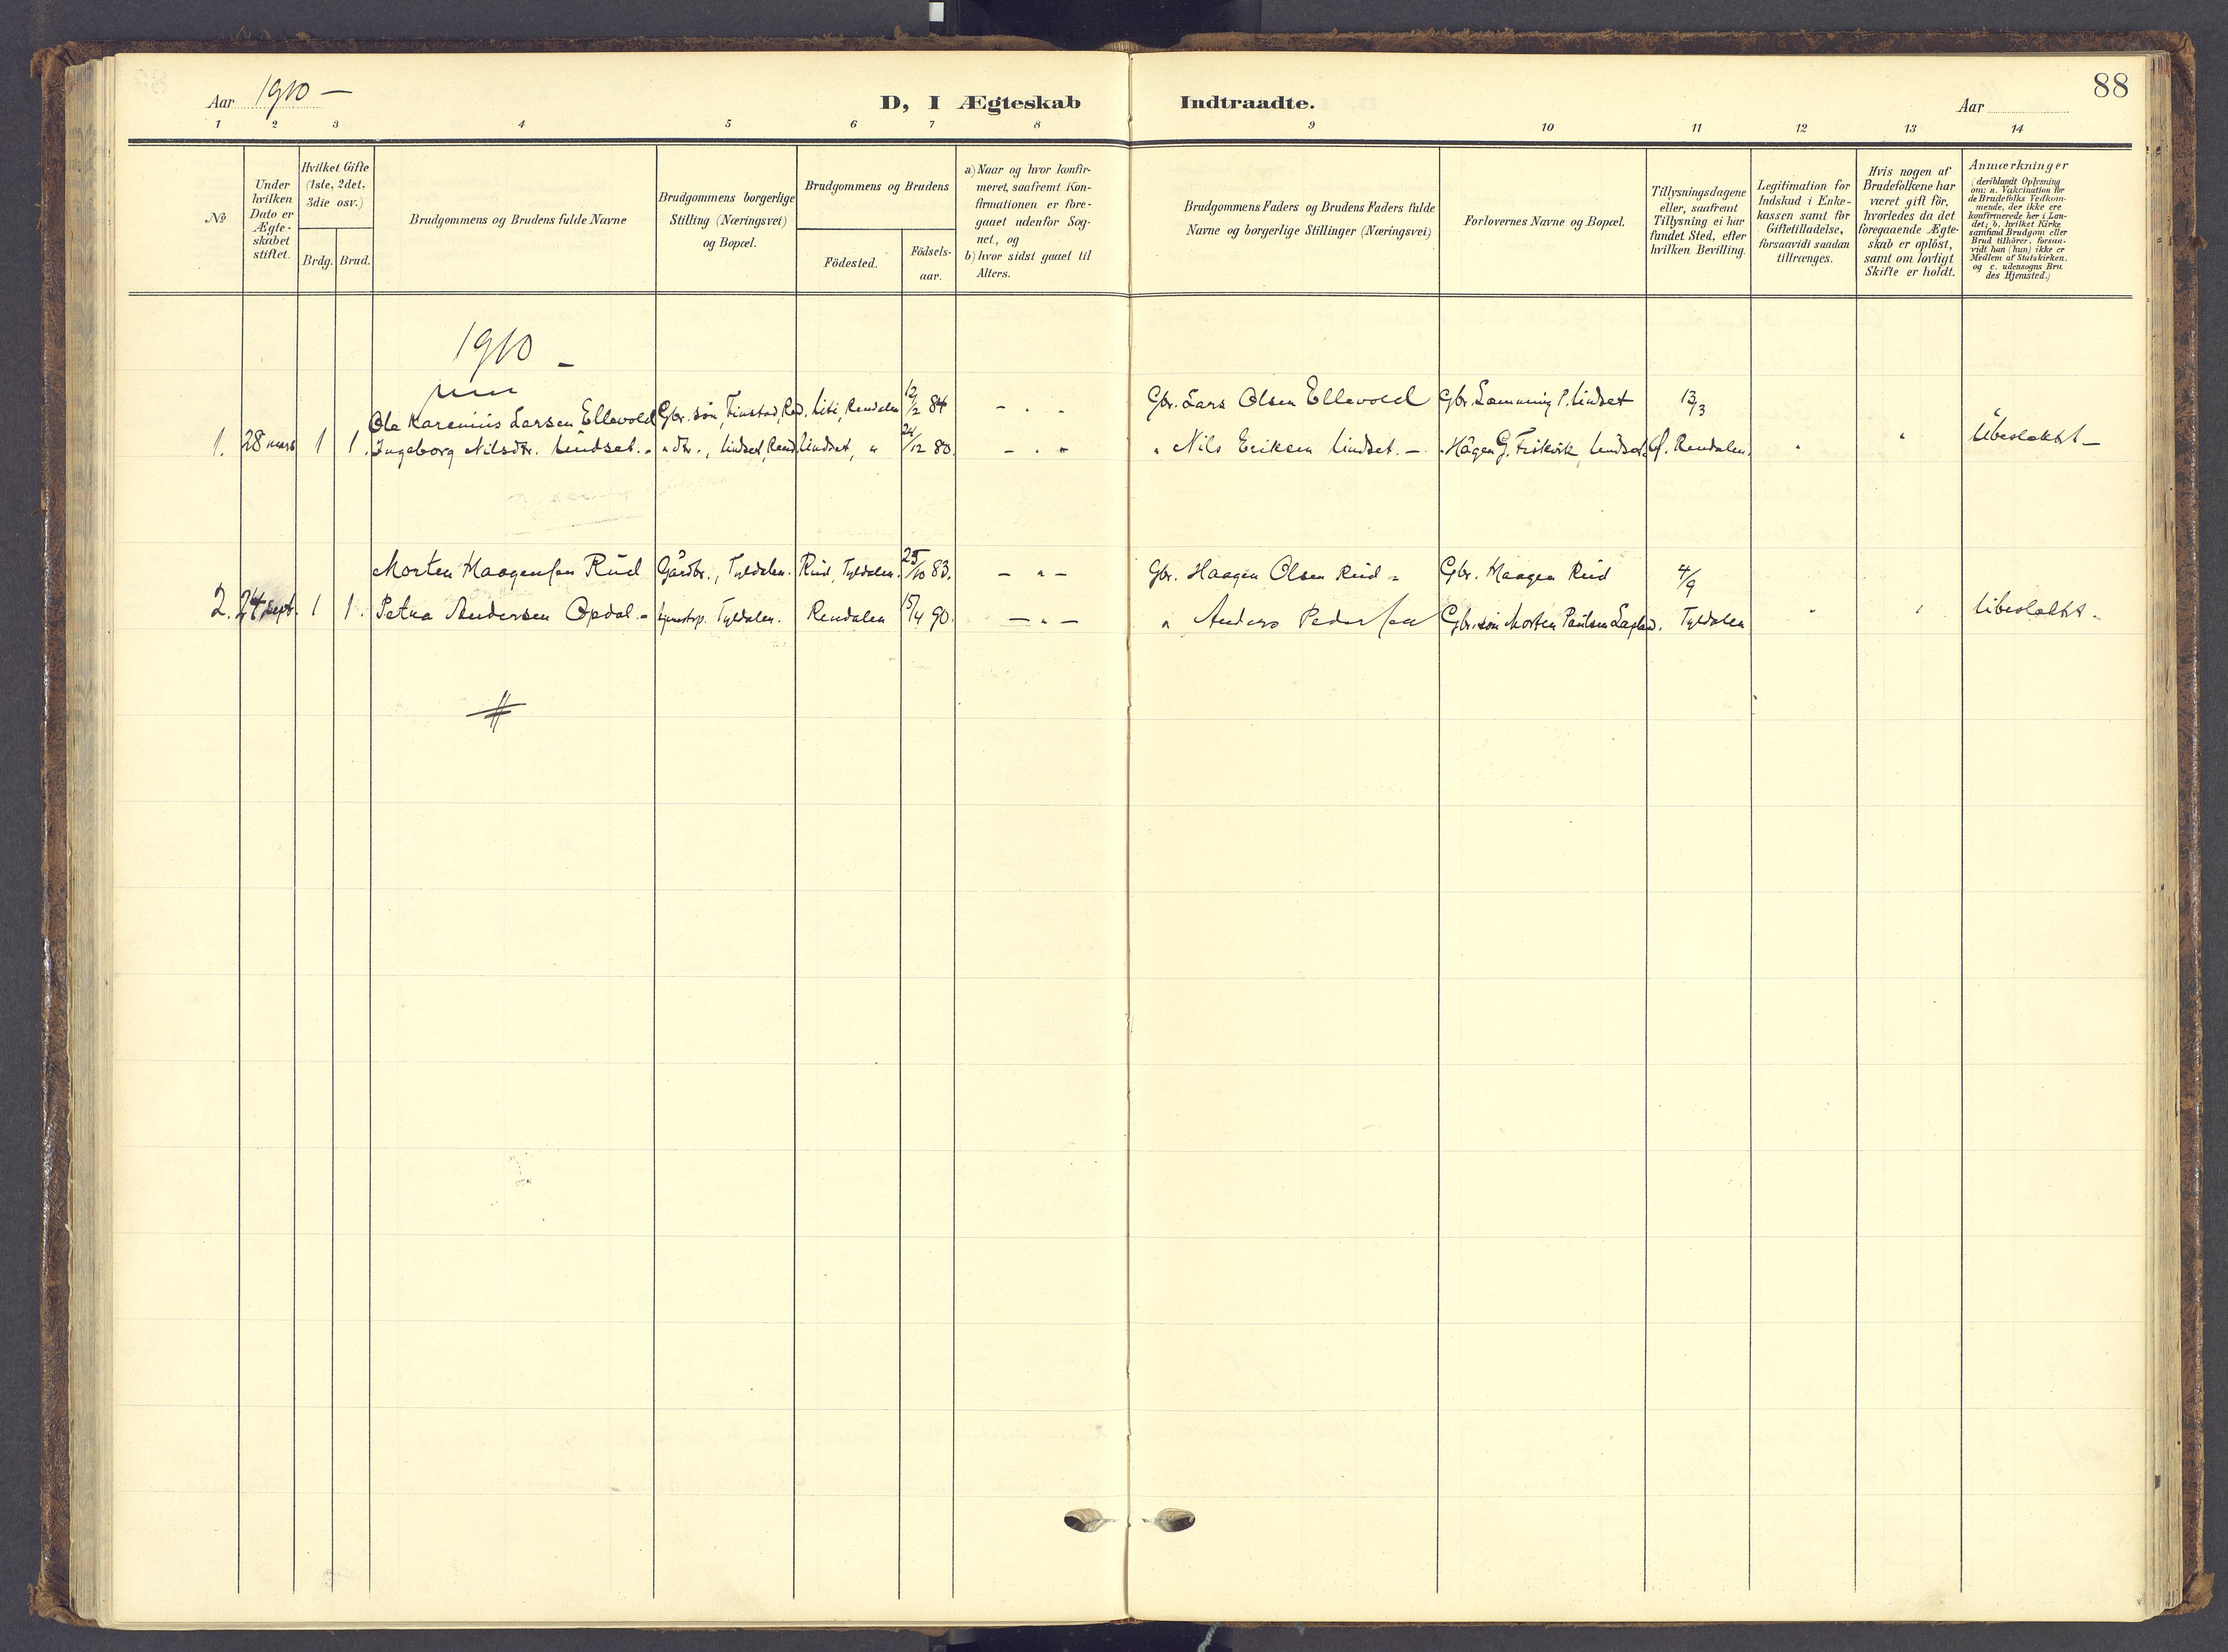 88
Aar 1910 —
D, I Ægteskab Indtraadte.
Aar
1 2 3 4 5 6 7 8 9 10 11 12 13 14
No
Under
hvilken
Dato er
Ægte-
skabet
stiftet.
Hvilket Gifte
(1ste, 2det,
3die osv.)
Brdg. Brud.
Brudgommens og Brudens fulde Navne
Brudgommens borgerlige
Stilling (Næringsvei)
og Bopæl.
Brudgommens og Brudens
Födested.
Födsels-
aar.
a) Naar og hvor konfir-
meret, saafremt Kon-
firmationen er fore-
gaaet udenfor Sog-
net, og
b) hvor sidst gaaet til
Alters.
Brudgommens Faders og Brudens Faders fulde
Navne og borgerlige Stillinger (Næringsvei)
Forlovernes Navne og Bopæl.
Tillysningsdagene
eller, saafremt
Tillysning ei har
fundet Sted, efter
hvilken Bevilling.
Legitimation for
Indskud i Enke-
kassen samt for
Giftetilladelse,
forsaavidt saadan
tiltrænges.
Hvis nogen af
Brudefolkene har
været gift för,
hvorledes da det
foregaaende Ægte-
skab er oplöst,
samt om lovligt
Skifte er holdt.
Anmærkninger
(deriblandt Oplysning
om: a. Vakcination for
de Brudefolks Vedkom-
mende, der ikke ere
konfirmerede her i Lan-
det; b. hvilket Kirke
samfund Brudgom eller
Brud tilhörer, forsaa-
vidt han (hun) ikke er
Medlem af Statskirken,
og c. udensogns Bru
des Hjemsted.)
1910 —
Ole Karenius Larsen Ellevold Gbr. sön, Finstad, Rend. Liti, Rendalen 12/2 84 - . - Gbr. Lars Olsen Ellevold Gbr. Lemming P. Undset 13/3
1. 28 mars 1 1. Ingeborg Nilsdtr. Undset. - " dtr., Undset, Rend. Undset, " 24/12 83. - . - " Nils Eriksen Undset. — " Hågen G. Fiskvik, Undset. Ø. Rendalen. " " Ubeslektet —
Morten Haagensen Rud Gårdbr., Tyldalen. Rud, Tyldalen. 25/10 83. — " — Gbr. Haagen Olsen Rud - Gbr. Haagen Rud 4/9
2. 24 sept. 1 1. Petra Andersen Opdal - Tyldalen. Rendalen 15/4 90. — " — " Anders Pedersen Gbr. sön Morten Paulsen Tyldalen " " Ubeslektet.